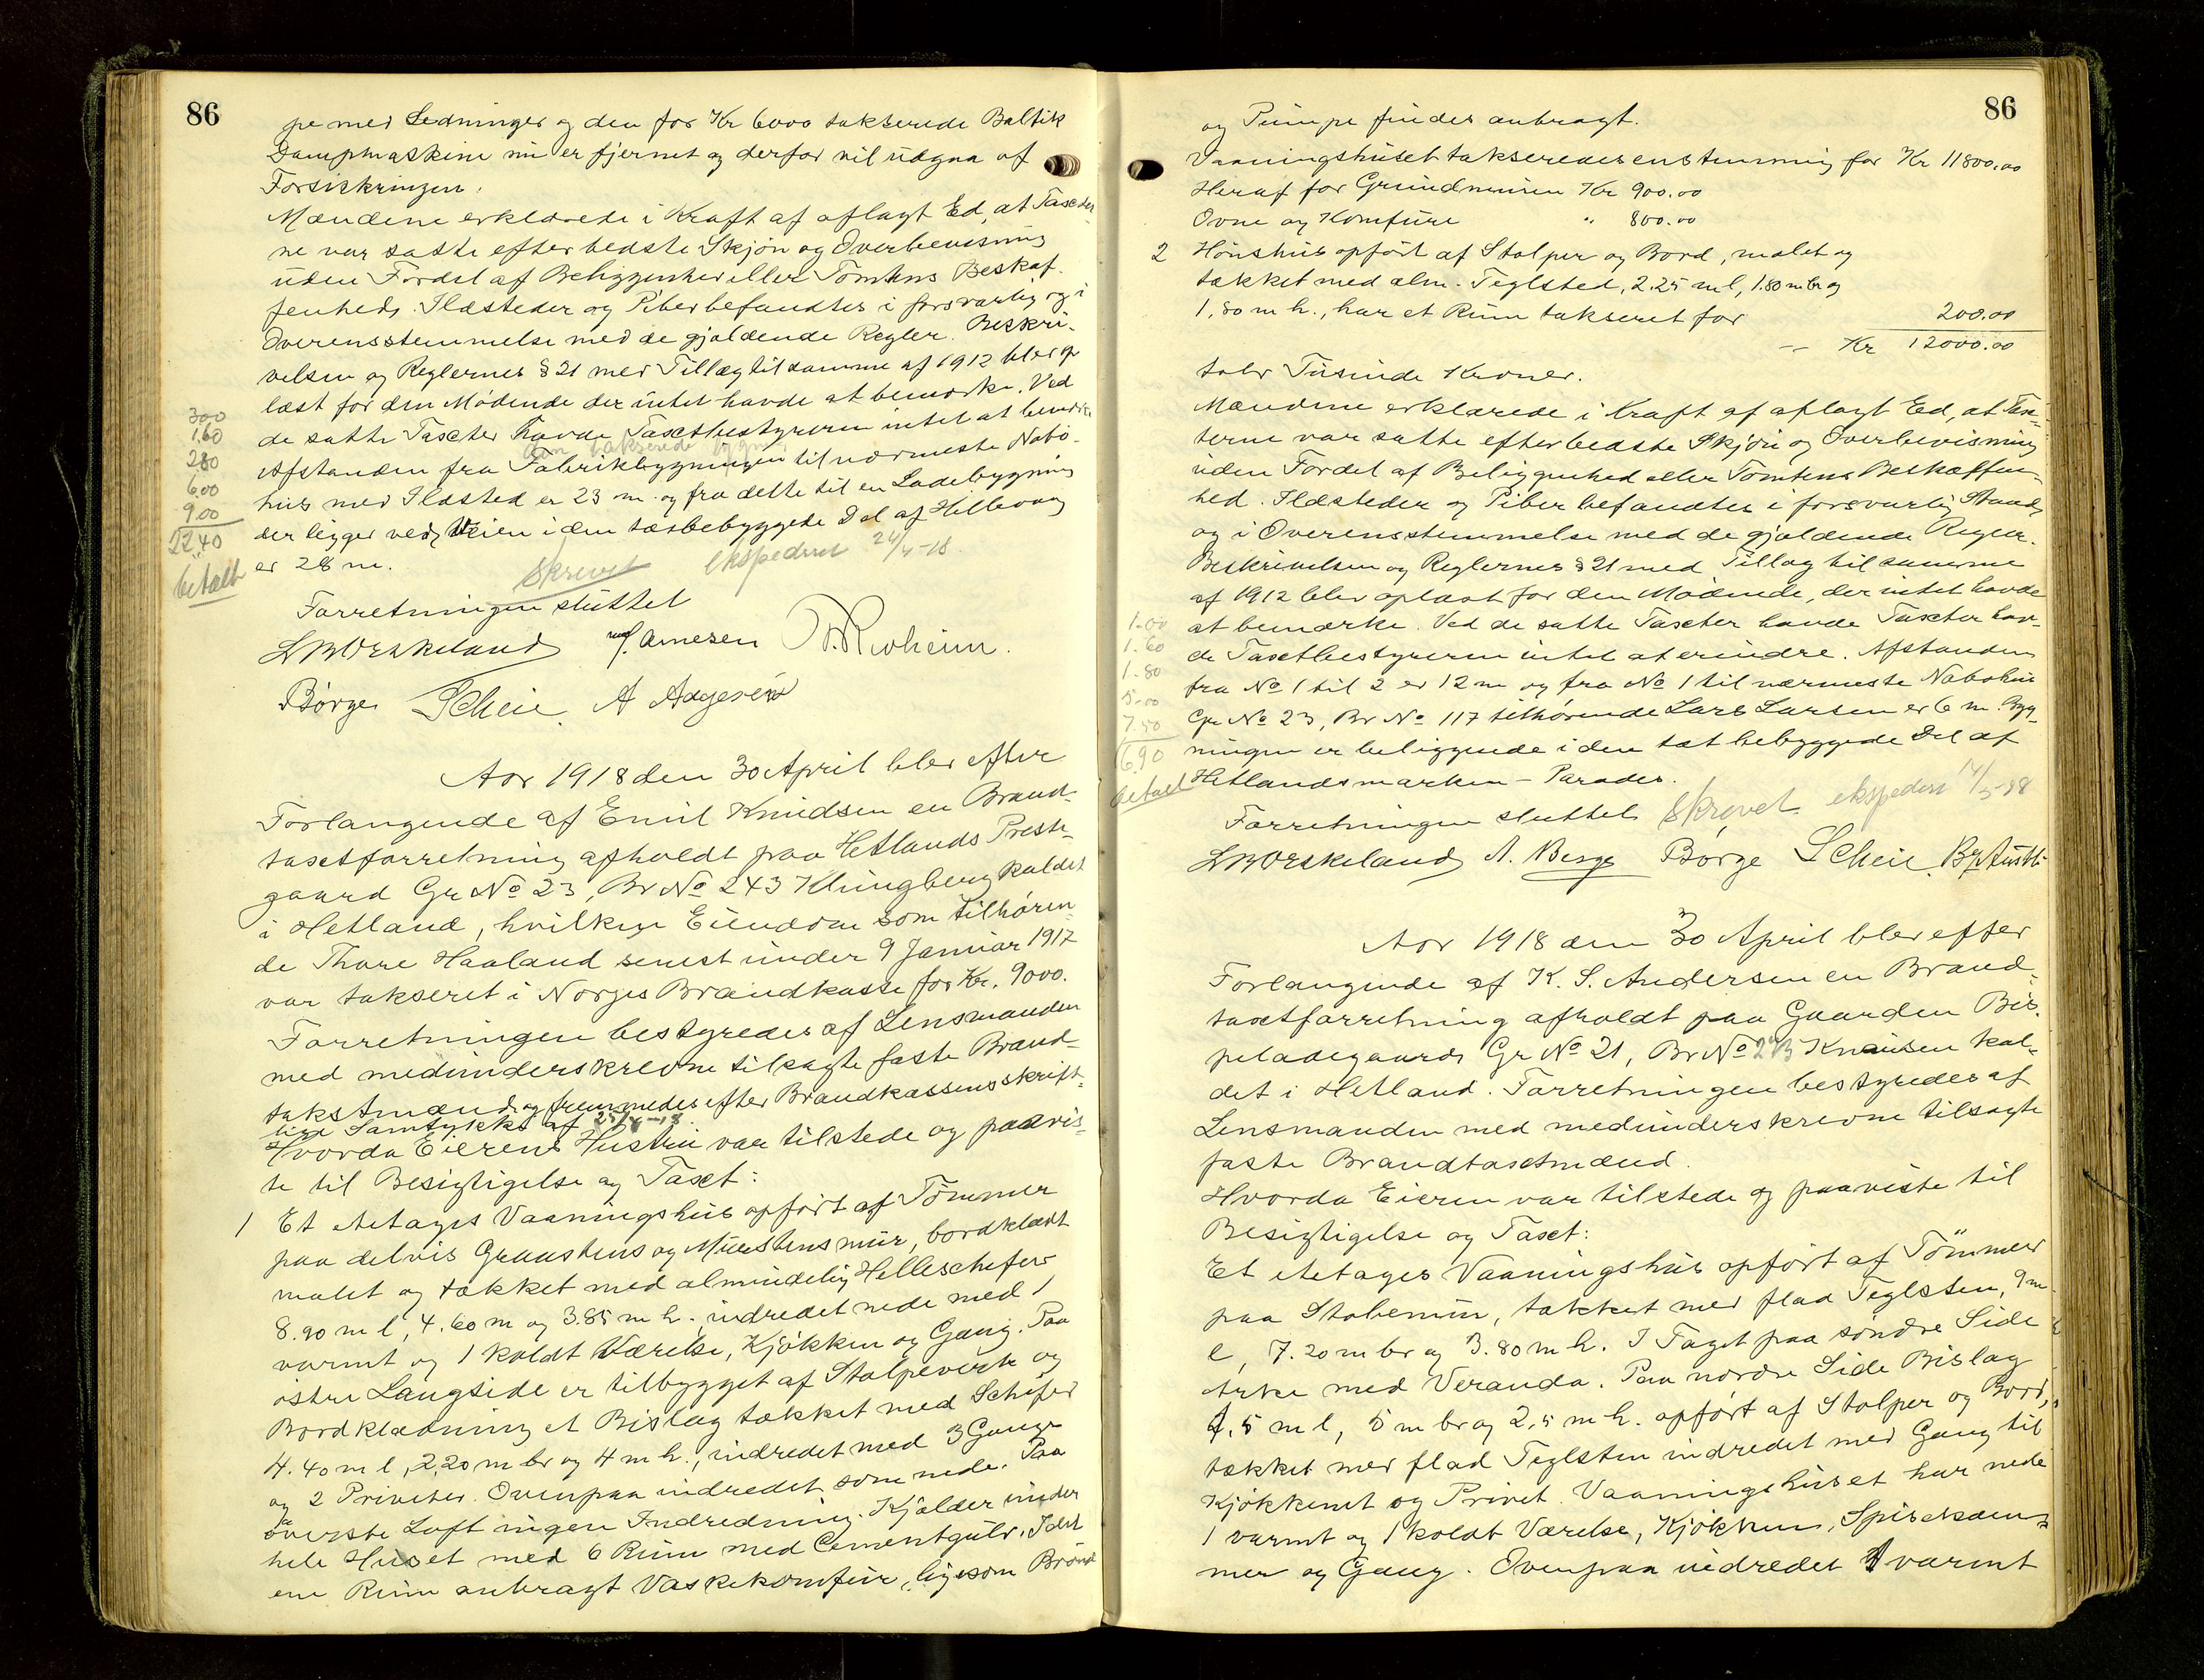 86
pe med Ledninger og den for Kr 6000 takserede Baltik
Dampmaskine nu er fjernet og derfor vil udgaa af
Forsikringen.
Mændene erklærede i Kraft af aflagt Ed, at Taxter
ne var satte efter bedste Skjøn og Overbevisning
uden Fordel af Beliggenhed eller Tomtens Beskaf-
fenhed. Ildsteder og Piber befandtes i forsvarlig og i
Overensstemmelse med de gjældende Regler. Beskri-
velsen og Reglernes § 21 med Tillæg til samme af 1912 blev op
læst for den Mødende der intet havde at bemærke. Ved
de satte Taxter havde Taxtbestyreren intet at bemærke
den takserede bygn
Afstanden fra Fabrikbygningen til nærmeste Nabo-
hus med Ildsted er 23 m. og fra dette til en Ladebygning
der ligger ved Veien i den tæsbebyggede Del af Hillevaag
er 28 m.
300
1.60
280
600
900
22.40
betalt
Skrevet ekspederet 24/4-18
Forretningen sluttet
L M Orskeland J. Arnesen
Børge Scheie A Aagesen
Aar 1918 den 30 April blev efter
Forlangende af Emil Knudsen en Brand-
taxtforretning afholdt paa Hetlands Preste-
gaard Gr No 23, Br No 243 Klungberg kaldet
i Hetland, hvilken Eiendom som tilhøren-
de Thore Haaland senest under 9 Januar 1917
var takseret i Norges Brandkasse for Kr. 9000.
Forretningen bestyredes af Lensmanden
med medunderskrevne tilsagte faste Brand-
takstmænd og fremmedes efter Brandkassens skrift-
lige Samtykke af 25/4-18
Hvorda Eierens Hustru var tilstede og paavis-
te til Besigtigelse og Taxt:
1 Et etetages Vaaningshus opført af Tømmer
paa delvis Graastens og Murstensmur, bordklædt
malet og tækket med almindelig Helleschefer
8.90 m l, 4.60 m og 3.85 m h., indredet nede med 1
varmt og 1 koldt Værelse, Kjøkken og Gang. Paa
østre Langside er tilbygget af Stolpeverk og
Bordklædning et Bislag tækket med Schifer
4.40 m l, 2.20 m br og 4 m h., indredet med 3 Gange
og 2 Priveter. Ovenpaa indredet som nede. Paa
øverste Loft ingen Indredning. Kjælder under
hele Huset med 6 Rum med Cementgulv. I det
ene Rum anbragt Vaskekomfur, ligesom Brønd
86
og Pumpe findes anbragt.
Vaaningshuset takseredes enstemmig for Kr 11800.00
Heraf for Grundmuren Kr 900.00
Ovne og Komfure " 800.00
2 Hønshus opført af Stolper og Bord, malet og
tækket med alm. Teglsted, 2.25 m l, 1.80 m br og
1.80 m h., har et Rum takseret for 200.00
-- Kr 12000.00
tolv Tusinde Kroner.
Mændene erklærede i Kraft af aflagt Ed, at Tax-
terne var satte efter bedste Skjøn og Overbevisning
uden Fordel af Beliggenhed eller Tomtens Beskaffen-
hed. Ildsteder og Piber befandtes i forsvarlig Stand
og i Overensstemmelse med de gjældende Regler.
Beskrivelsen og Reglernes § 21 med Tillæg til samme
af 1912 blev oplæst for den Mødende, der intet havde
at bemærke. Ved de satte Taxter havde Taxter hav-
de Taxtbestyreren intet at erindre. Afstanden
fra No 1 til 2 er 12 m og fra No 1 til nærmeste Nabohus
Gr No 23, Br No 117 tilhørende Lars Larsen er 6 m. Byg-
ningen er beliggende i den tæt bebyggede Del af
Hetlandsmarken - Parades.
1.00
1.60
1.80
5.00
7.50
16.90
betalt
Forretningen sluttet Skrevet ekspedert 14/5-18
L M Orskeland A. Berge Børge Scheie
Aar 1918 den 30 April blev efter
Forlangende af K. S. Andersen en Brand-
taxtforretning afholdt paa Gaarden Bis-
peladegaards Gr No 21, Br No 243 Knausen kal-
det i Hetland. Forretningen bestyredes af
Lensmanden med medunderskrevne tilsagte
faste Brandtaxtmænd.
Hvorda Eieren var tilstede og paaviste til
Besigtigelse og Taxt:
Et etetages Vaaningshus opført af Tømmer
paa Støbemur, tækket med flad Teglsten, 9 m
l, 7.20 m br og 3.80 m h. I Taget paa søndre Side
Arke med Veranda. Paa nordre Side Bislag
1.5 m l, 5 m br og 2.5 m h. opført af Stolper og Bord,
tækket med flad Teglsten indredet med Gang til
Kjøkkenet og Privet. Vaaningshuset har nede
1 varmt og 1 koldt Værelse, Kjøkken, Spiskam-
mer og Gang. Ovenpaa indredet 1 varmt